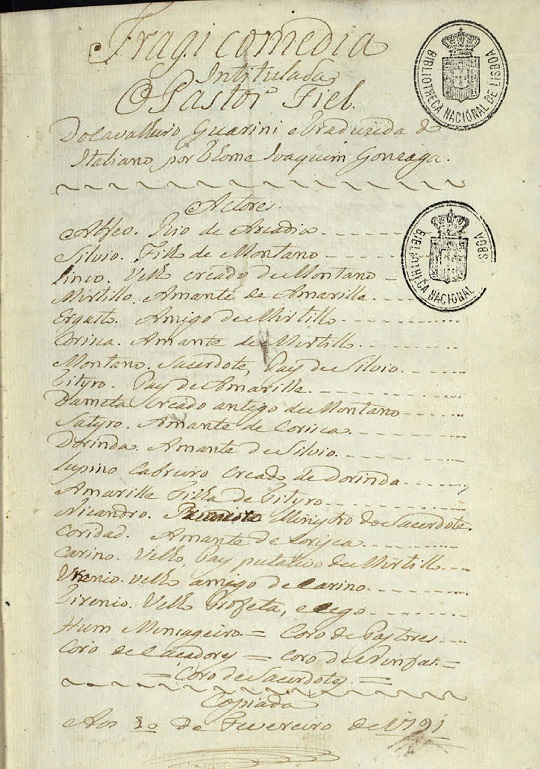 Tragicomedia
Intitulada
O Pastor Fiel.
Do Cavalleiro Guarini e traduzida do
Italiano por Thome Joaquim Gonzaga.
Actores.
Alfeo. Rio de Arcadia
Silvio. Filho de Montano
Linco. Velho creado de Montano
Mirtillo. Amante de Amarilla
Ergasto. Amigo de Mirtillo
Corisca. Amante de Mirtillo
Montano. Sacerdote, Pay de Silvio.
Tityro. Pay de Amarilla
Dameta Creado antigo de Montano
Satyro. Amante de Corisca
Dorinda. Amante de Silvio.
Lupino Cabreiro Creado de Dorinda
Amarilla Filha de Tityro
Nicandro. Ministro do Sacerdote.
Coridad. Amante de Corisca
Carino. Velho, Pay putativo de Mirtillo
Urenio. velho amigo de Carino.
Tirenio. Velho Profeta, e cego
Hum Mensageiro = Coro de Pastores
Coro de Caçadores = Coro de Ninfas =
= Coro de Sacerdotes =
Copiada
Aos 3o de Fevereiro de 1791
BIBLIOTHECA NACIONAL DE LISBOA
BIBLIOTHECA NACIONAL SBOA